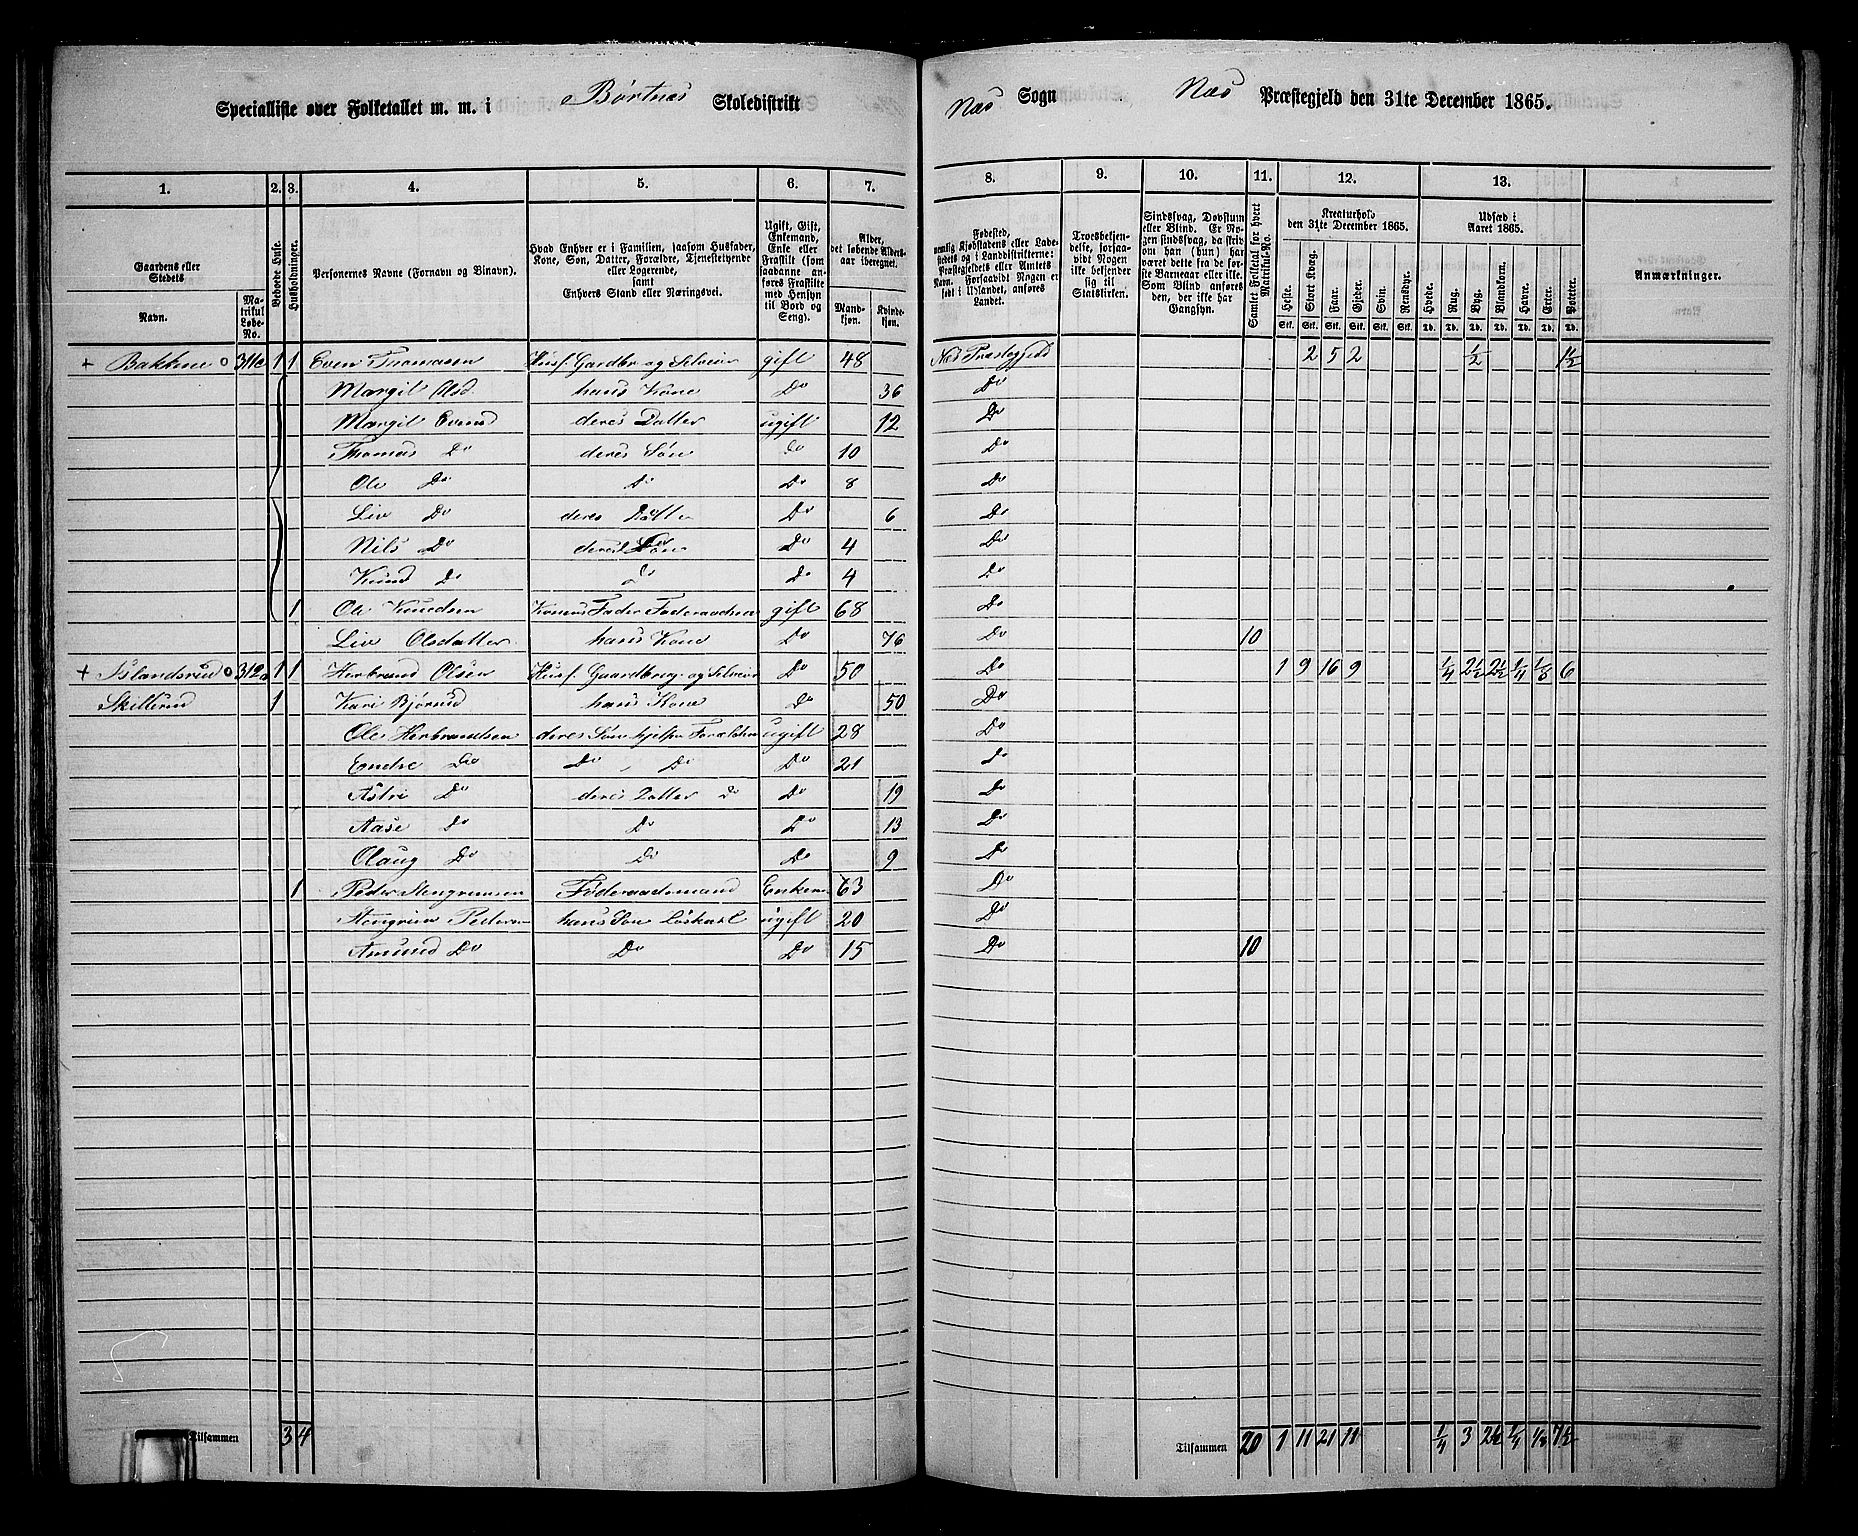 Specialliste over Folketallet m. m. i Børtnes Skoledistrikt Næs Sogn Næs Præstegjeld den 31te December 1865.
1. 2. 3. 4. 5. 6. 7. 8. 9. 10. 11. 12. 13.
Gaardens eller Stedets
Navn.
Matrikul Løbe-No.
Beboede Huse.
Husholdninger.
Personernes Navne (Fornavn og Binavn).
Hvad Enhver er i Familien, saasom Husfader, Kone, Søn, Datter, Forældre, Tjenestetyende eller Logerende, samt Enhvers Stand eller Næringsvei.
Ugift, Gift, Enkemand, Enke eller Fraskilt (som saadanne anføres Fraskilte med Hensyn til Bord og Seng).
Alder, det løbende Aldersaar iberegnet.
Mandkjøn. Kvindekjøn.
Fødested, nemlig Kjøbstadens eller Ladestedets og i Landdistrikterne: Præstegjeldets eller Amtets Navn. Forsaavidt Nogen er født i Udlandet, anføres Landet.
Troesbekjendelse, forsaavidt Nogen ikke bekjender sig til Statskirken.
Sindssvag, Døvstum eller Blind. Er Nogen sindssvag, da skrives om han (hun) har været dette fra de første Barneaar eller ikke. Som Blind anføres den, der ikke har Gangsyn.
Samlet Folketal for hvert Matrikul-No.
Kreaturhold den 31te December 1865.
Heste. Stort Kvæg. Faar. Gjeder. Svin. Rensdyr.
Stk. Stk. Stk. Stk. Stk. Stk.
Udsæd i Aaret 1865.
Hvede. Rug. Byg. Blandkorn. Havre. Erter. Poteter.
Td. Td. Td. Td. Td. Td. Td.
Anmærkninger.
+ Bakkene o 311c 1 1 Even Thomasen Husf. Gaardbr og Selveier gift 48 Næs Præstegjeld 2 5 2 ½ 1½
Margit Olsd. hans Kone Do 36 Do
Margit Evensd deres Datter ugift 12 Do
Thomas Do deres Søn Do 10 Do
Ole Do Do Do 8 Do
Liv Do deres Datter Do 6 Do
Nils Do deres Søn Do 4 Do
Knud Do Do Do 4 Do
1 Ole Knudsen Konens Fader gift 68 Do
Liv Olsdatter hans Kone Do 76 Do 10
+ Islandsrud o 312a 1 1 Herbrand Olsen Husf. Gaardbrug. og Selveier Do 50 Do 1 9 16 9 ¼ 2½ 2½ ¼ ⅛ 6
Skillerud 1 Kari Bjørnsd hans Kone Do 50 Do
Ole Herbrandsen deres Søn hjelper Forældre ugift 28 Do
Endre Do Do Do Do 21 Do
Astri Do deres Datter Do Do 19 Do
Aase Do Do Do 13 Do
Olaug Do Do Do 9 Do
1 Peder Stengrimsen Føderaadsmand Enkem 63 Do
Stengrim Pedersen hans Søn Løskarl ugift 20 Do
Amund Do Do Do 15 Do 10
Tilsammen 3 4 Tilsammen 20 1 11 21 11 ¼ 3 2½ ¼ ⅛ 7½